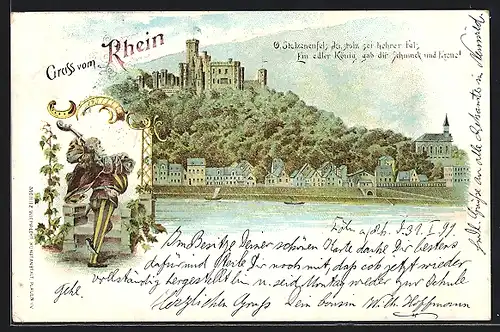 Gruss vom Rhein
O, Stolzenfels, du stolz sei hehrer Fels,
Ein edler König gab dir Schmuck und Krone!
Cöln a/Rh. d. 31. I. 99.
Im Besitze Deiner schönen Karte danke Dir bestens
dafür und theile Dir noch mit, daß ich jetzt wieder
vollständig hergestellt bin u. seit Montag wieder zur Schule
gehe. Herzlichen Gruß Dein Cousin W. Th. Hoffmann.
Grüße an alle Bekannte in Neuwied.